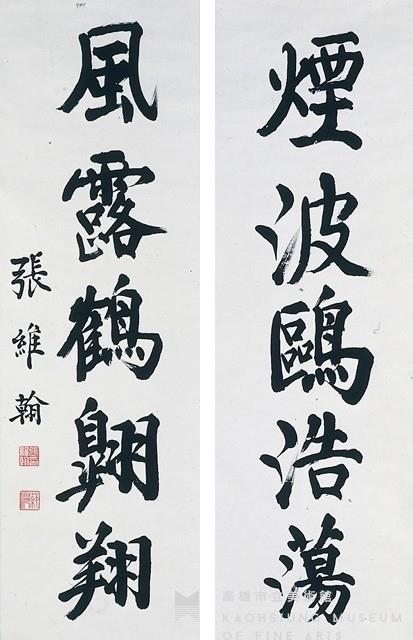 煙波鷗浩蕩
風露鶴翺翔
張維翰
高雄市立美術館
KAOHSIUNG MUSEUM
OF FINE ARTS